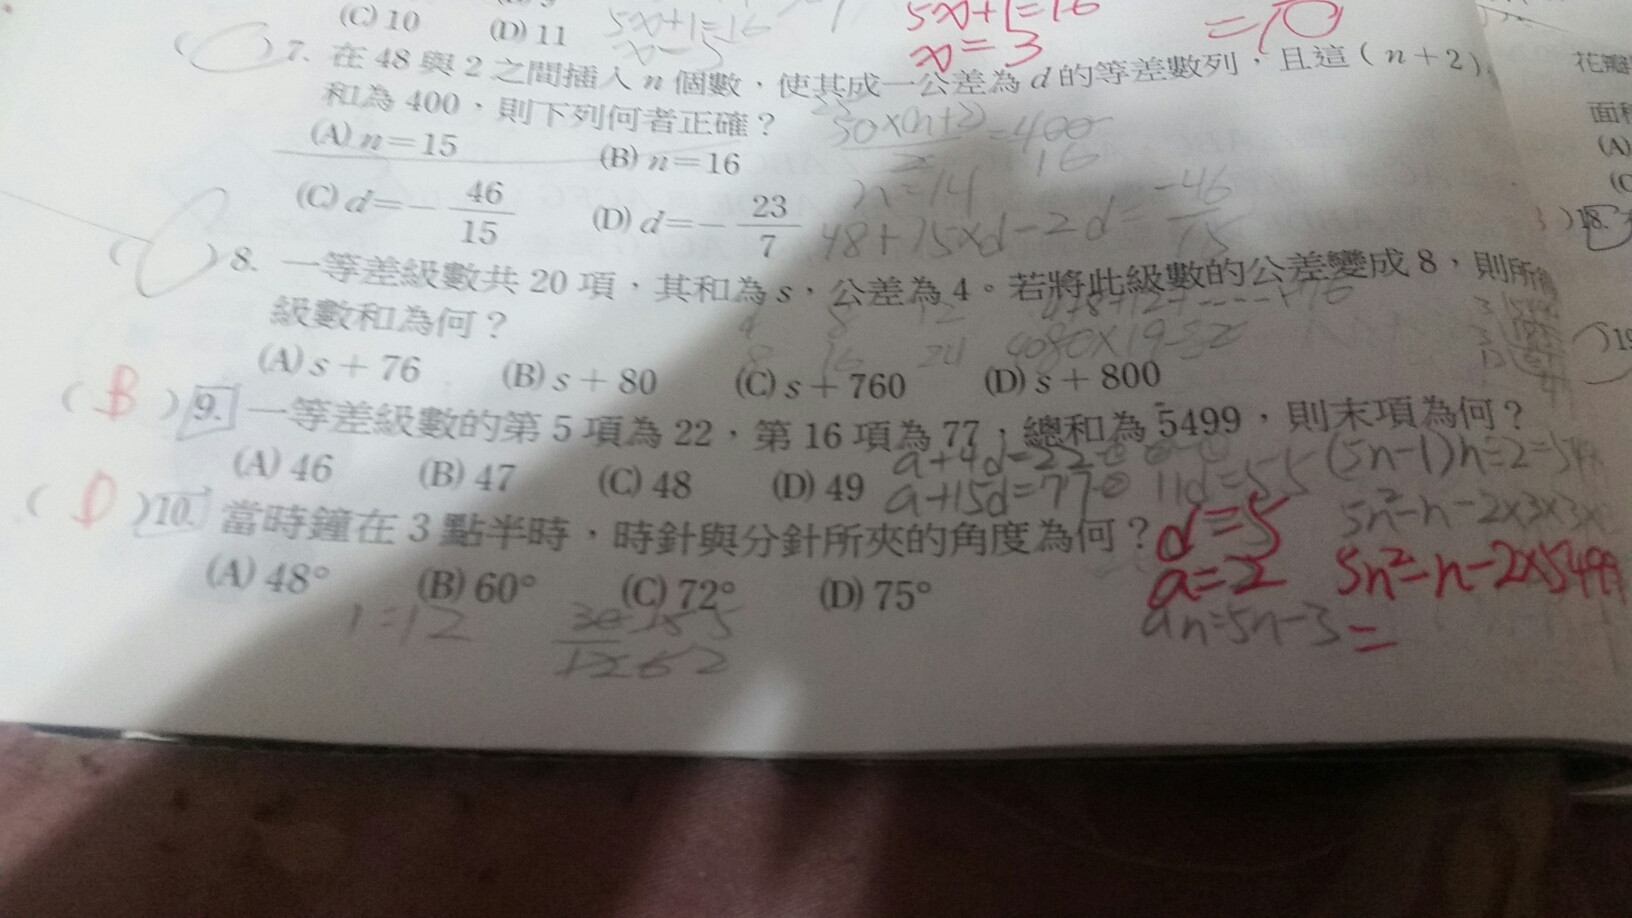 (C) 10 (D) 11 5x+1=16 5x+1=16 =10
x=5 x=3
7. 在 48 與 2 之間插入 n 個數，使其成一公差為 d 的等差數列，且這（n＋2）
和為 400，則下列何者正確？ 50×(n+2) =400
2 16
(A) n＝15 (B) n＝16 n=14
(C) d＝－46/15 (D) d＝－23/7 48+15×d=2 d=-46/15
8. 一等差級數共 20 項，其和為 s，公差為 4。若將此級數的公差變成 8，則所
級數和為何？ 4 8 12
8 16 24
(A) s＋76 (B) s＋80 (C) s＋760 (D) s＋800
(B) 9. 一等差級數的第 5 項為 22，第 16 項為 77，總和為 5499，則末項為何？
(A) 46 (B) 47 (C) 48 (D) 49 a+4d=22 (5n-1)n÷2=
a+15d=77② 11d=55 5n²-n-2×3×3×
(D) 10. 當時鐘在 3 點半時，時針與分針所夾的角度為何？ d=5
(A) 48° (B) 60° (C) 72° (D) 75° a=2 5n²-n-2×5499
1=12 an=5n-3 =
花瓣
面積
(A)
(C
18.
19